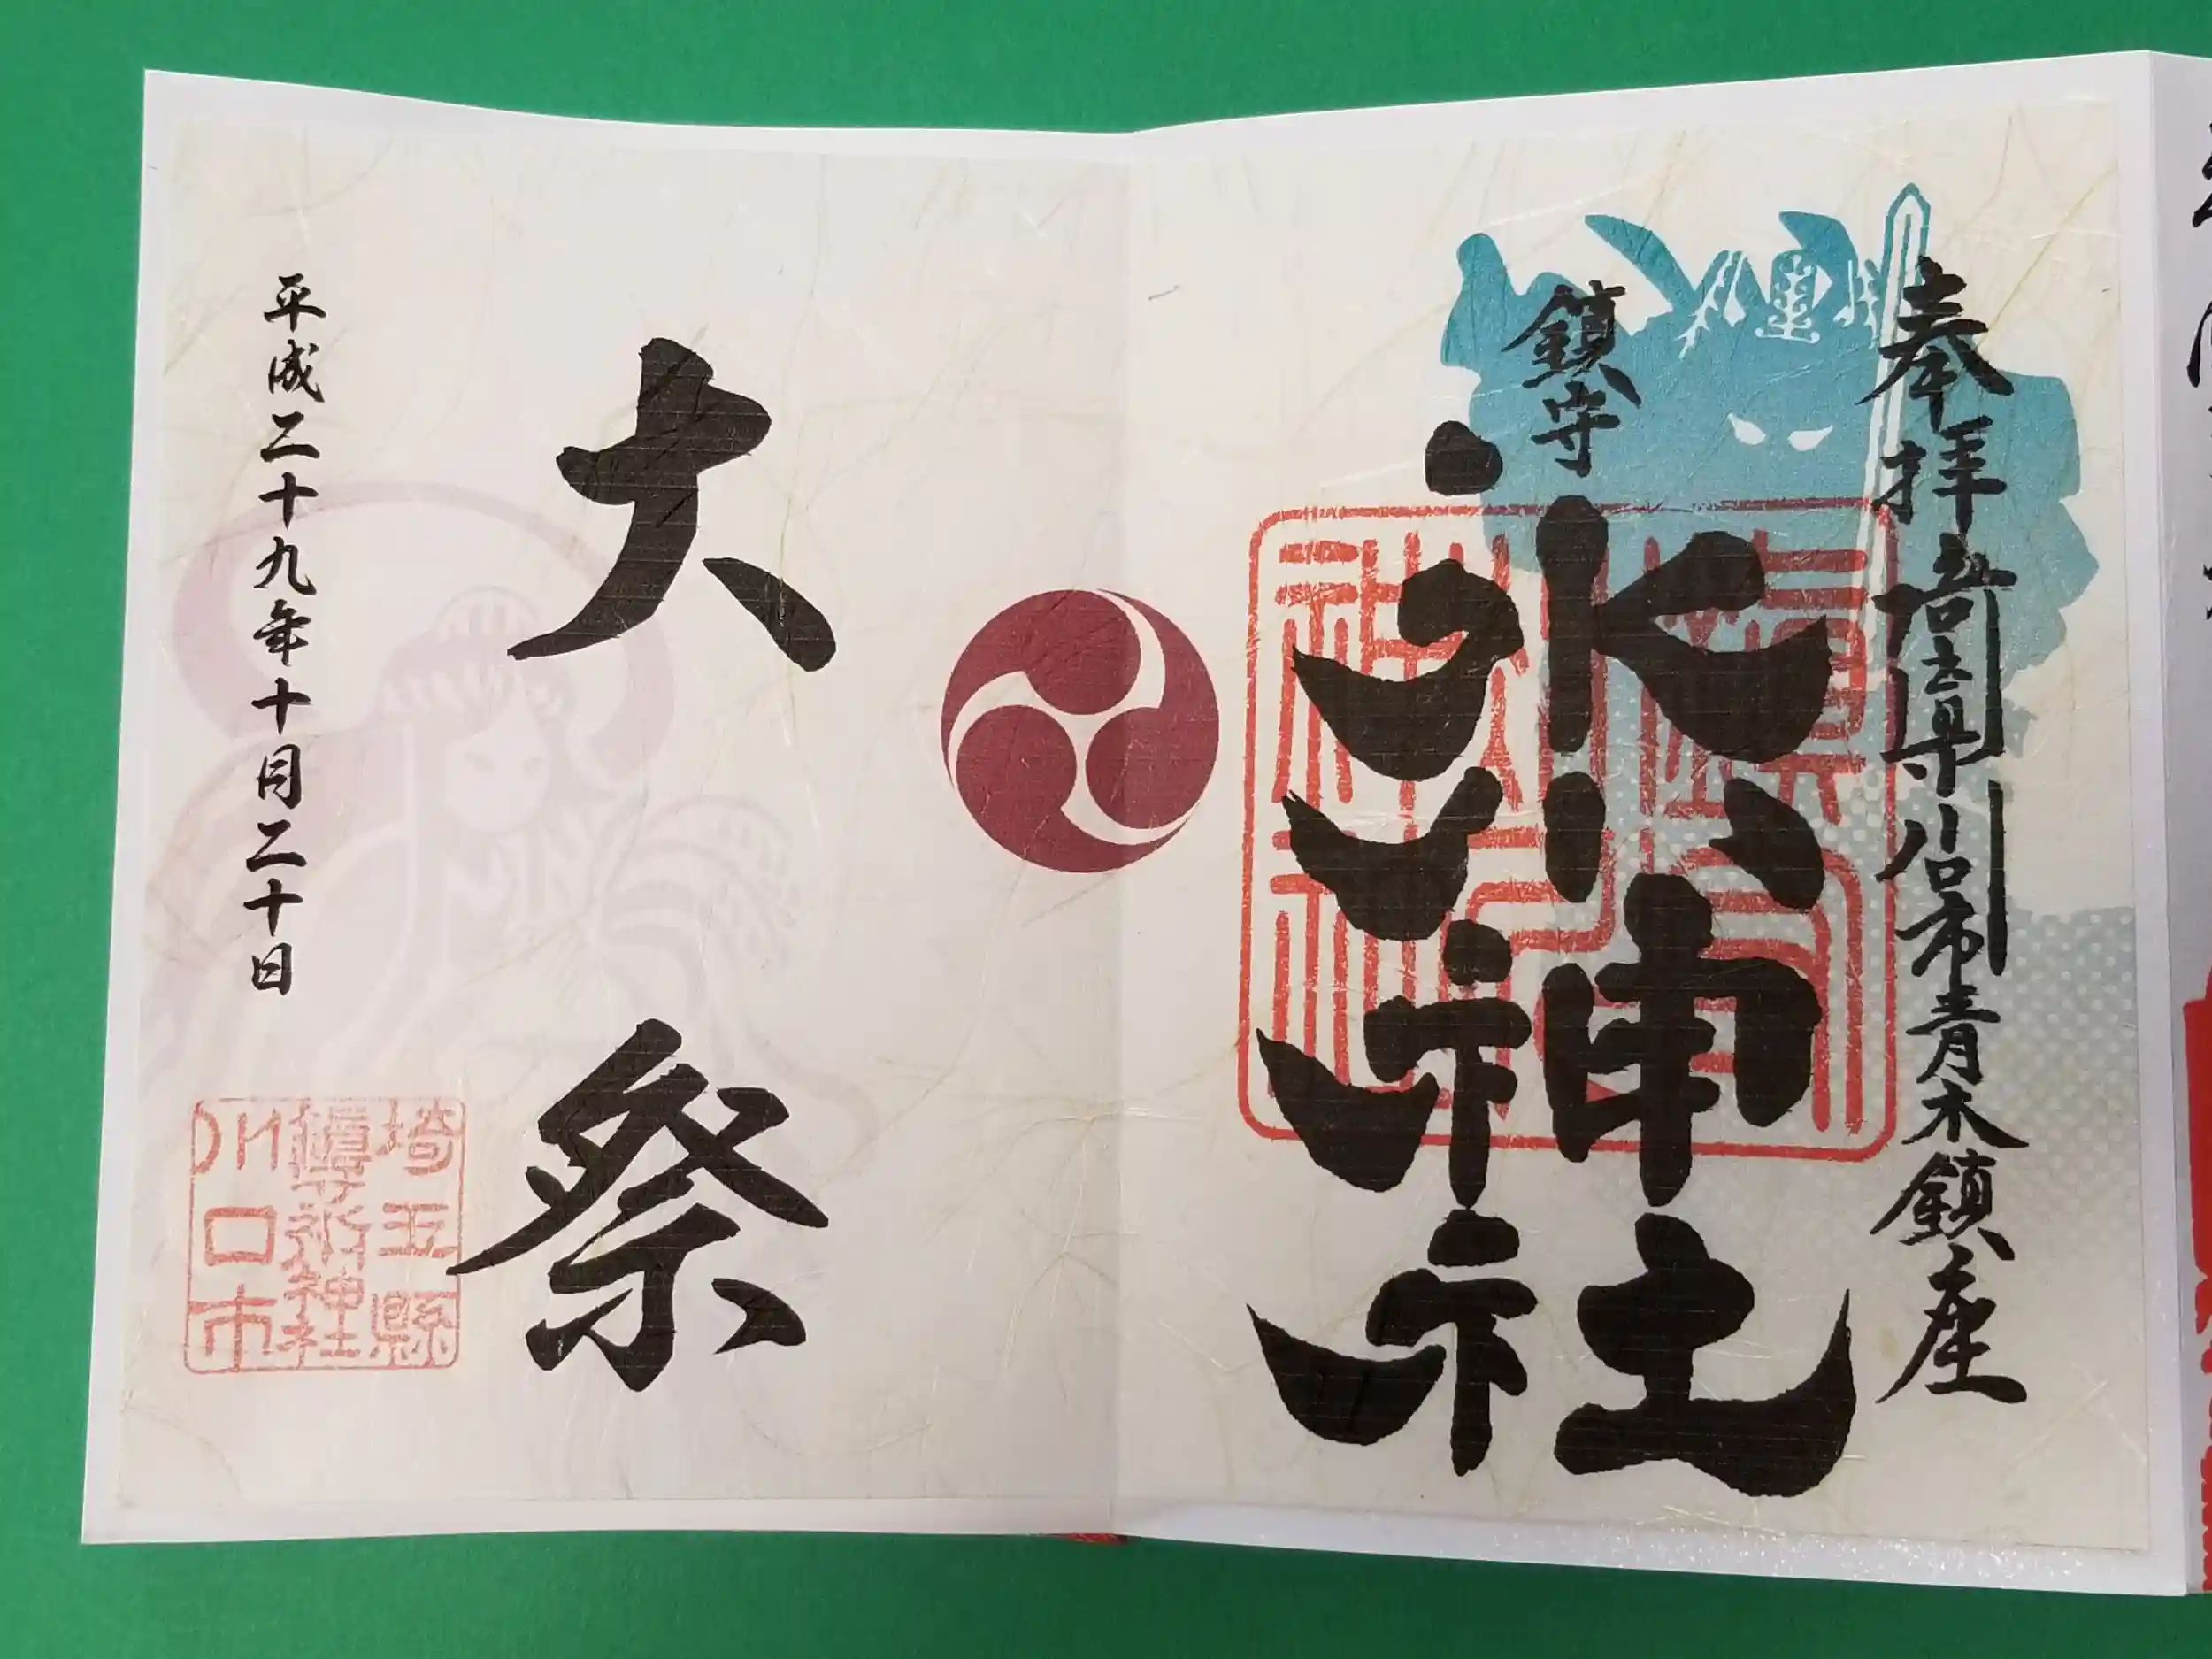 奉拝 埼玉県川口市青木鎮座
鎮守
氷川神社
大祭
平成二十九年十月二十日
埼玉縣
鎮守氷川神社
川口市